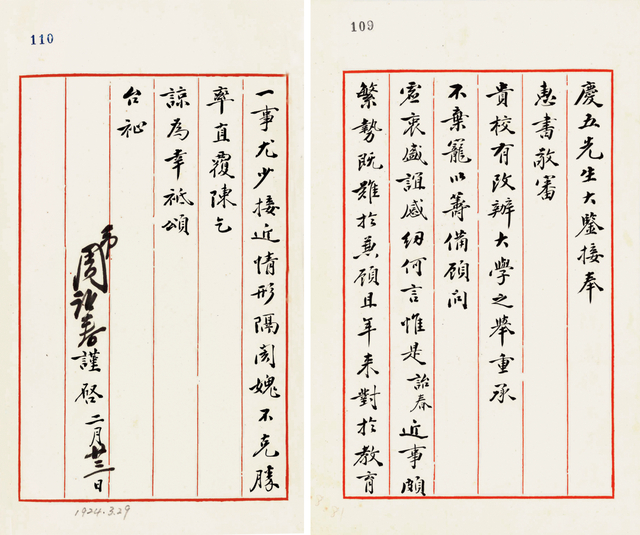 109
慶五先生大鑒接奉
惠書敬審
貴校有改辦大學之舉重承
不棄寵以籌備顧問
虛衷盛誼感紉何言惟是詒春近事頗
繁勢既難於兼顧且年來對於教育
110
一事尤少接近情形隔閡愧不克勝
率直覆陳乞
諒為幸祗頌
台祉
弟周詒春謹啓二月廿三日
1924.3.29